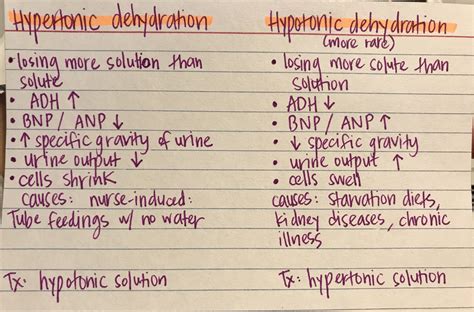 Hypertonic dehydration
• losing more solution than
solute
• ADH ↑
• BNP / ANP ↓
• ↑ specific gravity of urine
• urine output ↓
• cells shrink
causes: nurse-induced:
Tube feedings w/ no water
Tx: hypotonic solution
Hypotonic dehydration
(more rare)
• losing more solute than
solution
• ADH ↓
• BNP / ANP ↑
• ↓ specific gravity
• urine output ↑
• cells swell
causes: starvation diets,
kidney diseases, chronic
illness
Tx: hypertonic solution